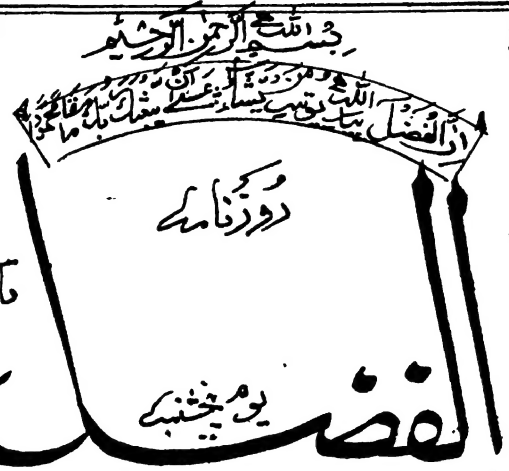 بسم اللہ الرحمن الرحیم
ان الفضل بید اللہ یوتیہ من یشاء عسیٰ ان یبعثک ربک مقاما محمودا
روزنامہ
الفضل
یوم پنجشنبہ